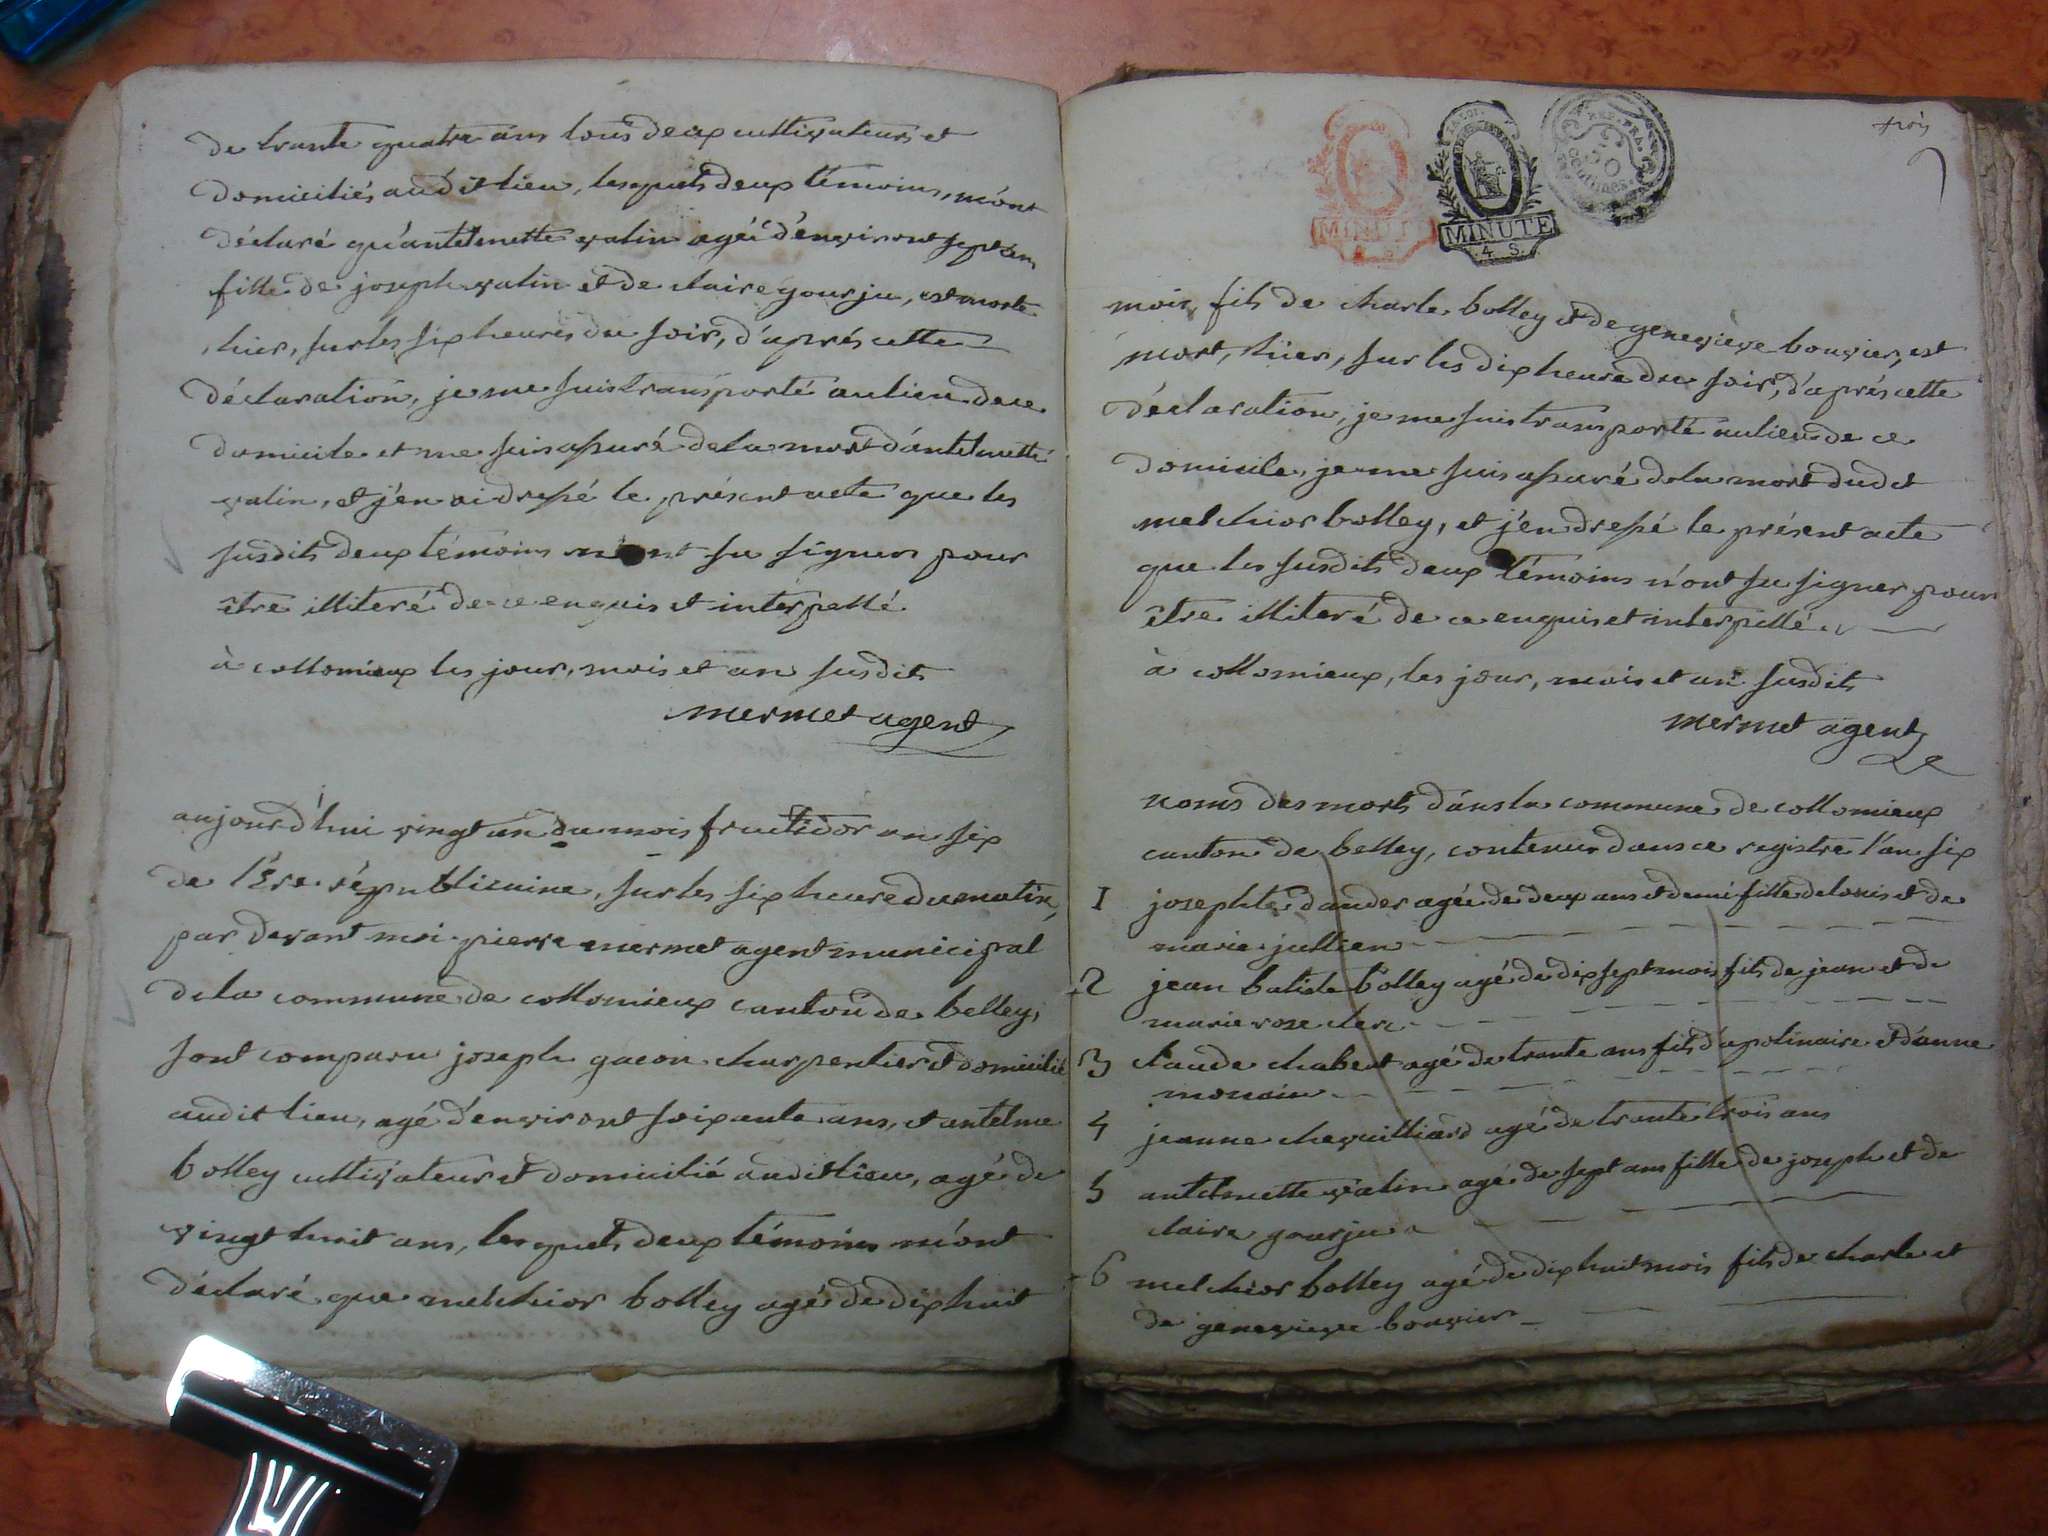 de trante quatre ans tous deux cultivateurs et
domiciliés au dit lieu, lesquels deux témoins, m'ont
déclaré qu'antelmette valin agée d'environt sept ans
fille de joseph valin et de claire gourju, est morte
hier, sur les six heures du soir, d'aprés cette
déclaration, je me suis transporté au lieu de ce
domicile et me suis assuré de la mort d'antelmette
valin, et j'en ai dressé le présent acte que les
susdits deux témoins n'ont su signer pour
être illiteré de ce enquis et interpellé.
à collomieux les jour, mois et an susdits
mermet agent
aujourd'hui vingt un du mois fructidor an six
de l'ére républicaine, sur les six heure du matin,
par devant moi pierre mermet agent municipal
de la commune de collomieux canton de belley,
sont comparu joseph gacon charpentier et domicilié
audit lieu, agé d'environt soixante ans, et antelme
bolley cultivateur et domicilié audit lieu, agé de
vingt huit ans, lesquels deux témoins m'ont
déclaré que melchior bolley agé de dix huit
LA LOI
MINUTE
4 S.
MINUTE
4 S.
REP. FRA.
50
centimes
mois, fils de charle bolley et de geneviève bouvier, est
mort, hier, sur les dix heure du soir, d'aprés cette
déclaration, je me suis transporté au lieu de ce
domicile, je me suis assuré de la mort dudit
melchior bolley, et j'en dressé le présent acte
que les susdits deux témoins n'ont su signer pour
être illiteré de ce enquis et interpellé.
à collomieux, les jour, mois et an susdits
mermet agent
noms des morts dans la commune de collomieux
canton de belley, contenus dans ce registre l'an six
1 josephte dander agée de deux ans et demi fille de louis et de
marie jullien
2 jean batiste bolley agé de dix sept mois fils de jean et de
marie rose clerc
3 claude chabert agé de trante ans fils d'apolinaire et d'anne
monain
4 jeanne chevilliard agé de trante trois ans
5 antelmette valin agé de sept ans fille de joseph et de
claire gourju
6 melchior bolley agé de dix huit mois fils de charle et
de genevieve bouvier